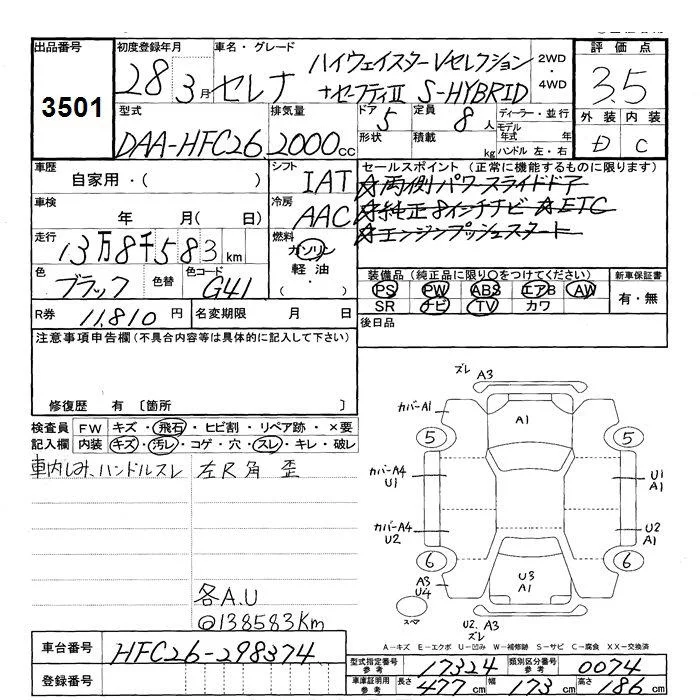 出品番号 初度登録年月 車名・グレード 評価点
3501
28 3月 セレナ ハイウェイスターVセレクション
+セーフティⅡ S-HYBRID
2WD・4WD
3.5
型式 排気量 ドア 5 定員 8人 ディーラー・並行 外装 内装
DAA-HFC26 2000cc 形状 積載 kg モデル年式 年
ハンドル 左・右
D C
車歴 シフト セールスポイント (正常に機能するものに限ります)
自家用・( ) IAT ☆両側パワースライドドア
車検 冷房 ☆純正8インチナビ ☆ETC
年 月( 日) AAC ☆エンジンプッシュスタート
走行 燃料
13万8千583km ガソリン
軽油
( ・ )
色 色替 色コード
ブラック G41
装備品(純正品に限り○をつけてください) 新車保証書
PS PW ABS エアB AW 有・無
SR ナビ TV カワ
R券 11,810円 名変期限 月 日 後日品
注意事項申告欄(不具合内容等は具体的に記入して下さい)
修復歴 有 〔箇所 〕
検査員 FW キズ・飛石・ヒビ割・リペア跡・×要
記入欄 内装 キズ・汚レ・コゲ・穴・スレ・キレ・破レ
車内しみ、ハンドルスレ 左R角 歪
各A.U
◎138583Km
ズレ A3
カバーA1 A1
5 5
カバーA4 U1 U1 A1
カバーA4 U2 U2 A1
6 6
A3 U4 U3 A1
スペア U2.A3 ズレ
A-キズ E-エクボ U-凹み W-補修跡 S-サビ C-腐食 XX-交換済
車台番号 HFC26-298374
登録番号
型式指定番号 参考 17324 類別区分番号 参考 0074
車庫証明用 参考 長さ 477cm 幅 173cm 高さ 186cm